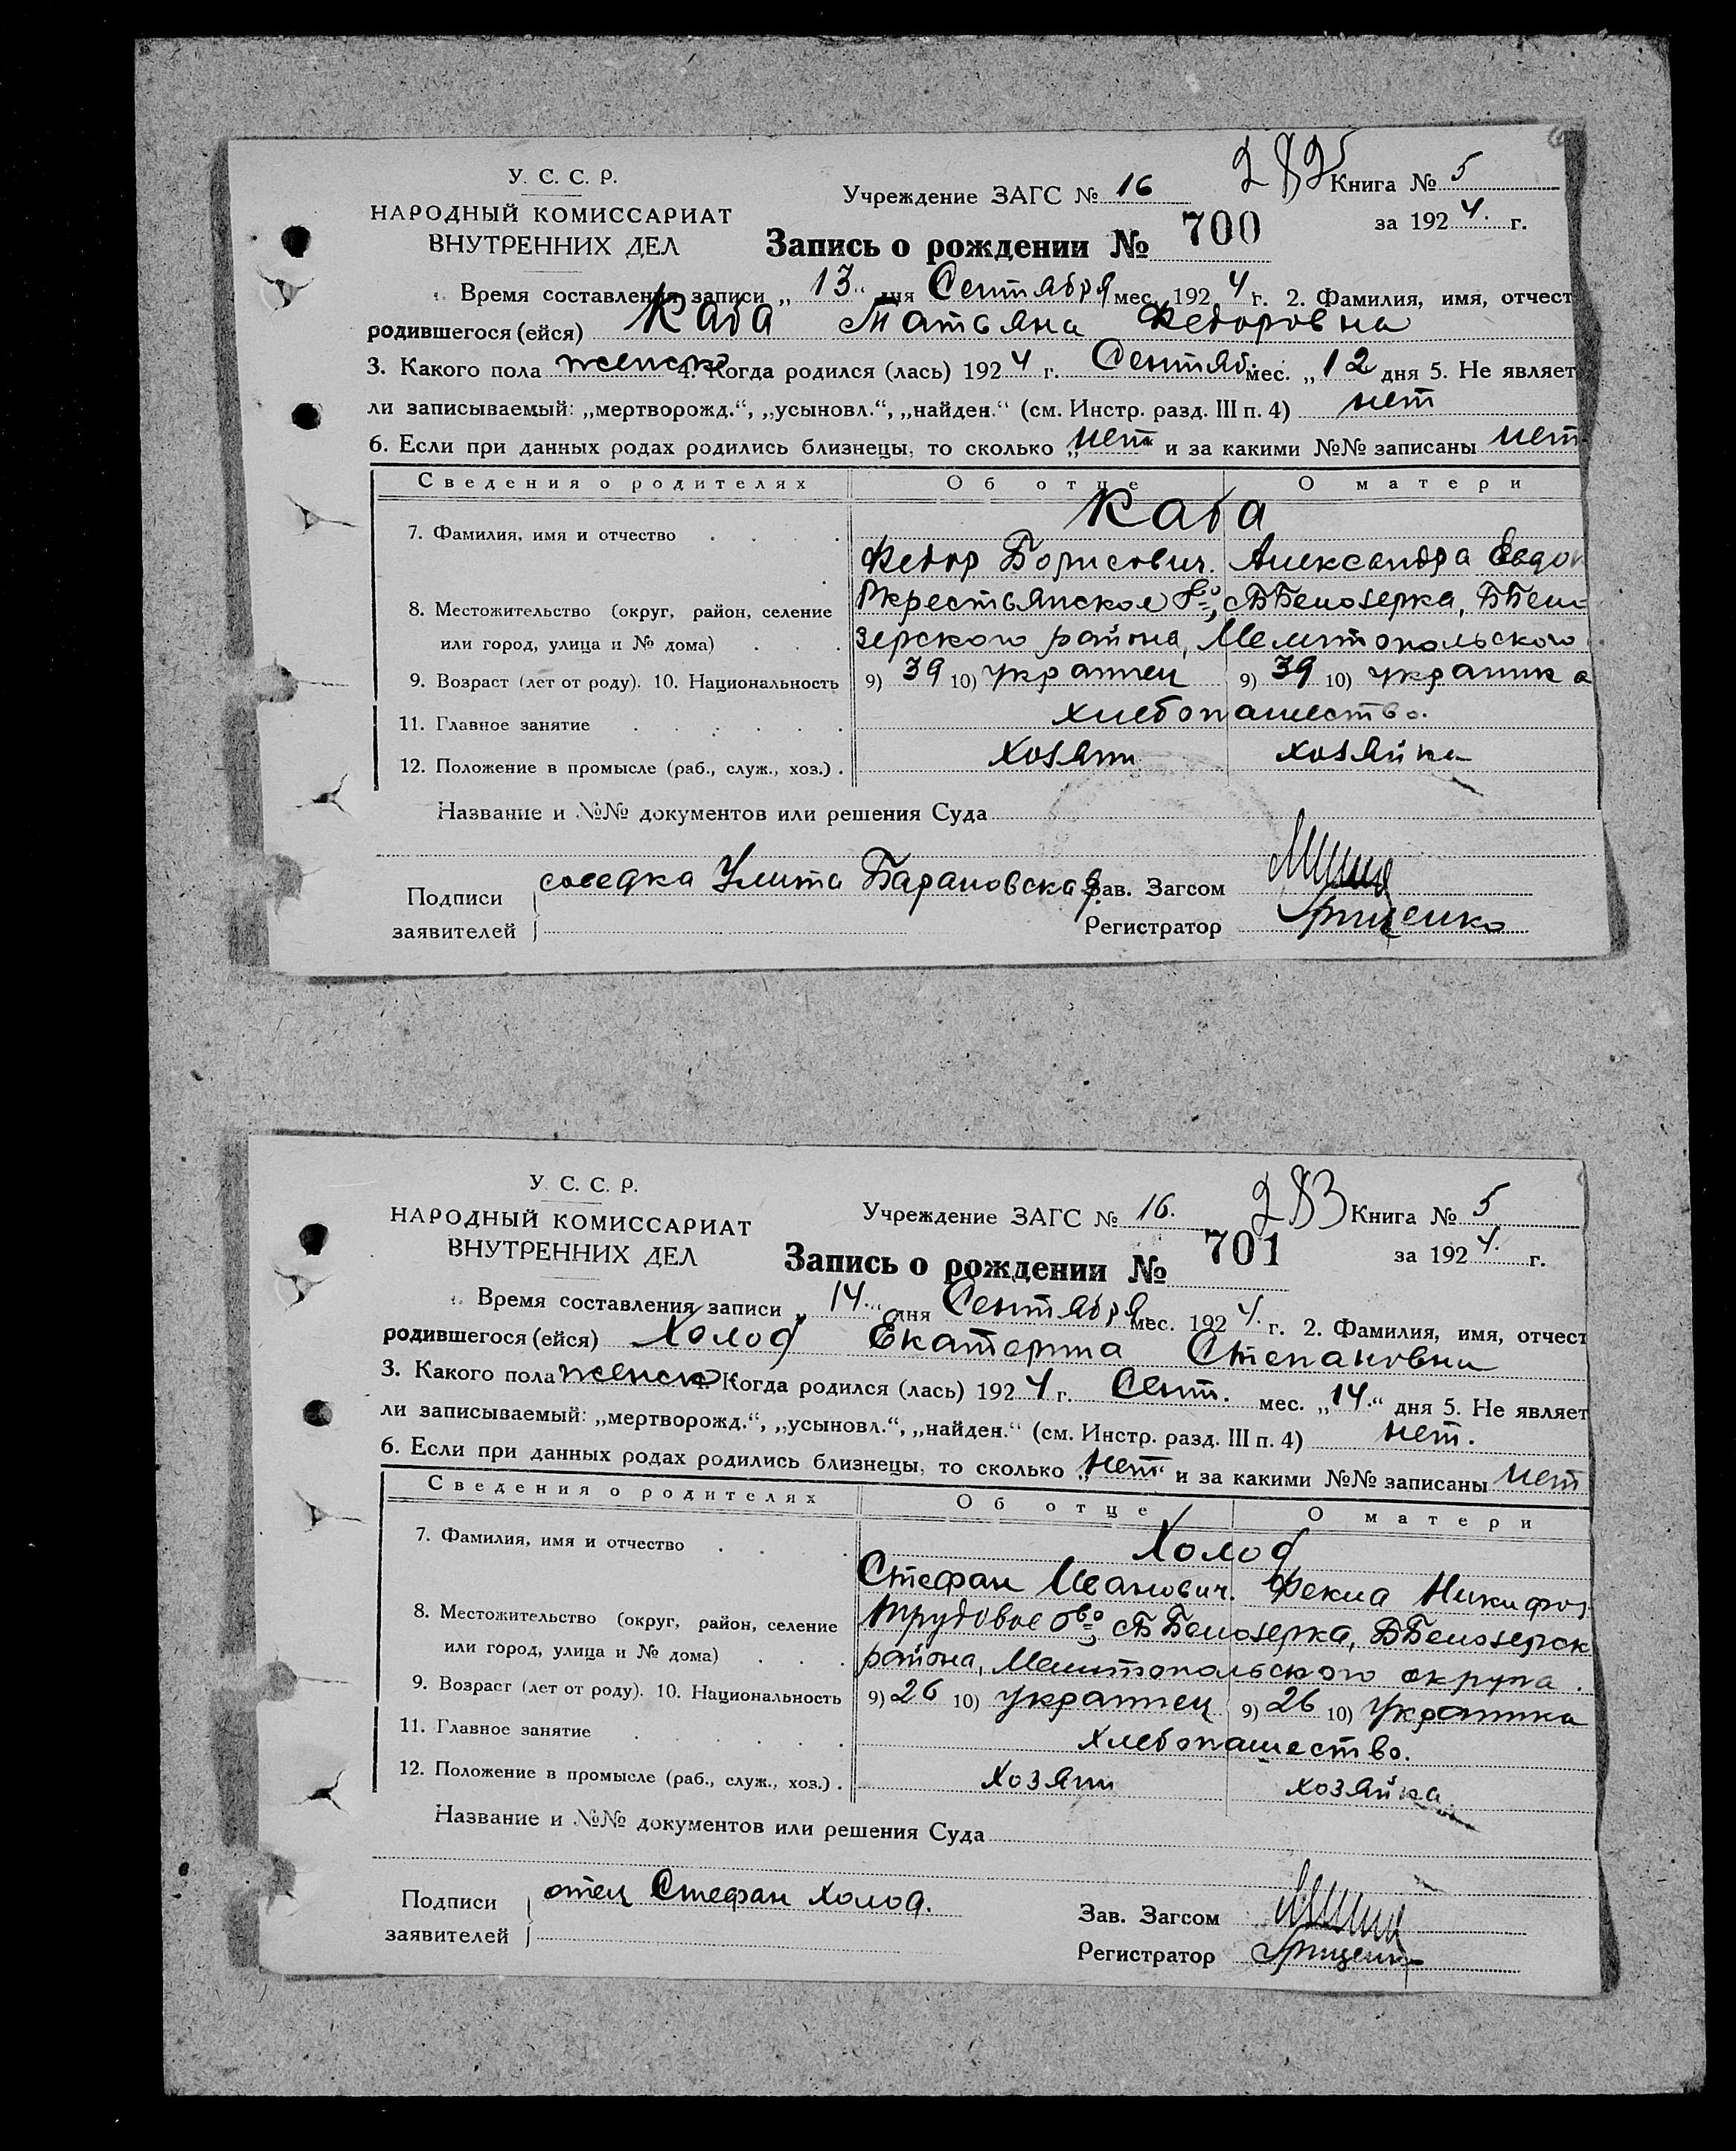 282
У. С. С. Р.
Учреждение ЗАГС № 16 Книга № 5
НАРОДНЫЙ КОМИССАРИАТ
ВНУТРЕННИХ ДЕЛ
за 1924. г.
Запись о рождении № 700
Время составления записи „13“ дня Сентября мес. 1924 г. 2. Фамилия, имя, отчест
родившегося (ейся) Каба Татьяна Федоровна
3. Какого пола женск 4. Когда родился (лась) 1924 г. Сентяб. мес. „12 дня 5. Не являет
ли записываемый: „мертворожд.“, „усыновл.“, „найден.“ (см. Инстр. разд. III п. 4) нет
6. Если при данных родах родились близнецы, то сколько „нет“ и за какими №№ записаны нет
Сведения о родителях Об отце О матери
7. Фамилия, имя и отчество Каба
Федор Борисович. Александра Евдок
8. Местожительство (округ, район, селение
или город, улица и № дома)
с. ББелозерка, ББело
зерского района, Мелитопольского
9. Возраст (лет от роду). 10. Национальность 9) 39 10) украинец 9) 39 10) украинка
11. Главное занятие хлебопашество.
12. Положение в промысле (раб., служ., хоз.). хозяин хозяйка
Название и №№ документов или решения Суда
Подписи заявителей соседка Улита Барановская.
Зав. Загсом
Регистратор Грищенко
283
У. С. С. Р.
Учреждение ЗАГС № 16. Книга № 5
НАРОДНЫЙ КОМИССАРИАТ
ВНУТРЕННИХ ДЕЛ
за 1924. г.
Запись о рождении № 701
Время составления записи „14.“ дня Сентября мес. 1924. г. 2. Фамилия, имя, отчест
родившегося (ейся) Холод Екатерина Степановна
3. Какого пола женск 4. Когда родился (лась) 1924 г. Сент. мес. „14.“ дня 5. Не являет
ли записываемый: „мертворожд.“, „усыновл.“, „найден.“ (см. Инстр. разд. III п. 4) нет.
6. Если при данных родах родились близнецы, то сколько „нет“ и за какими №№ записаны нет
Сведения о родителях Об отце О матери
7. Фамилия, имя и отчество Холод
Стефан Иванович. Фекла Никифор
8. Местожительство (округ, район, селение
или город, улица и № дома)
Трудовое о-во, с. ББелозерка, ББелозерск
района, Мелитопольского округа.
9. Возраст (лет от роду). 10. Национальность 9) 26 10) украинец 9) 26 10) украинка
11. Главное занятие хлебопашество.
12. Положение в промысле (раб., служ., хоз.). хозяин хозяйка
Название и №№ документов или решения Суда
Подписи заявителей отец Стефан Холод.
Зав. Загсом
Регистратор Грищенко